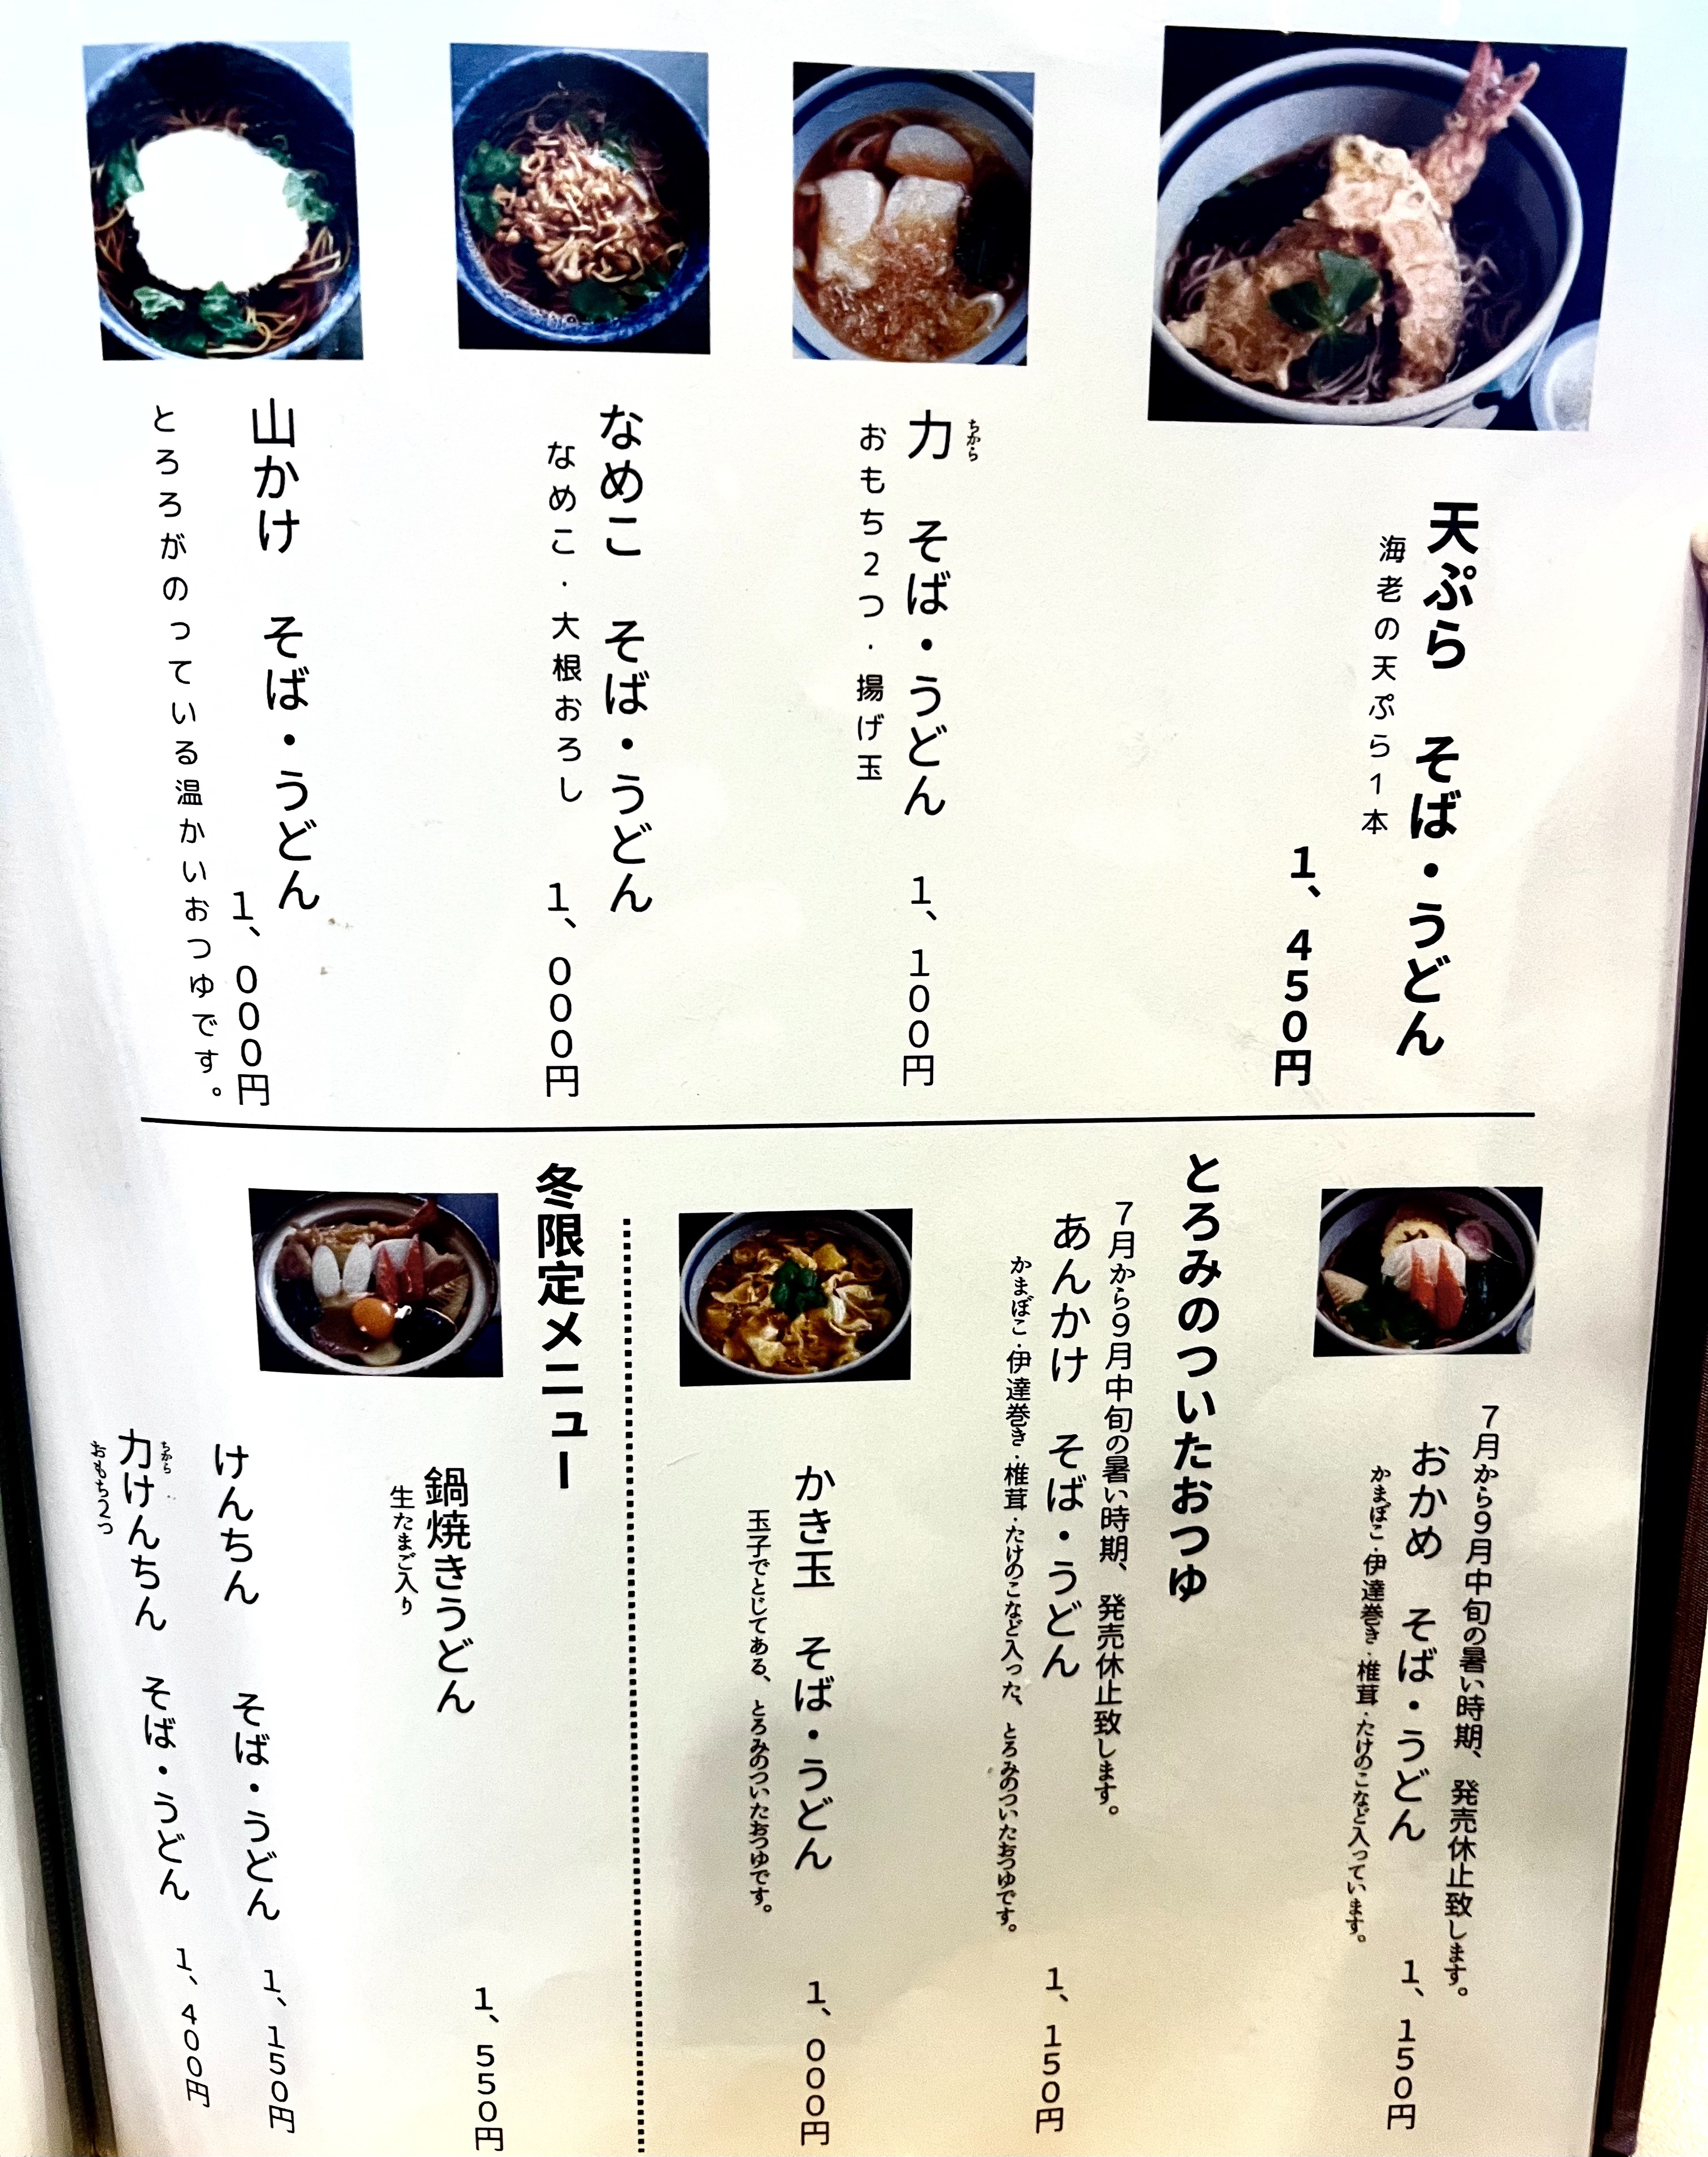 天ぷら　そば・うどん
海老の天ぷら１本
１、４５０円
ちから
力　そば・うどん　１、１００円
おもち２つ・揚げ玉
なめこ　そば・うどん
なめこ・大根おろし
１、０００円
山かけ　そば・うどん
１、０００円
とろろがのっている温かいおつゆです。
７月から９月中旬の暑い時期、発売休止致します。
おかめ　そば・うどん　１、１５０円
かまぼこ・伊達巻き・椎茸・たけのこなど入っています。
とろみのついたおつゆ
７月から９月中旬の暑い時期、発売休止致します。
あんかけ　そば・うどん　１、１５０円
かまぼこ・伊達巻き・椎茸・たけのこなど入った、とろみのついたおつゆです。
かき玉　そば・うどん　１、０００円
玉子でとじてある、とろみのついたおつゆです。
冬限定メニュー
鍋焼きうどん　１、５５０円
生たまご入り
けんちん　そば・うどん　１、１５０円
ちから
力けんちん　そば・うどん　１、４００円
おもち２つ